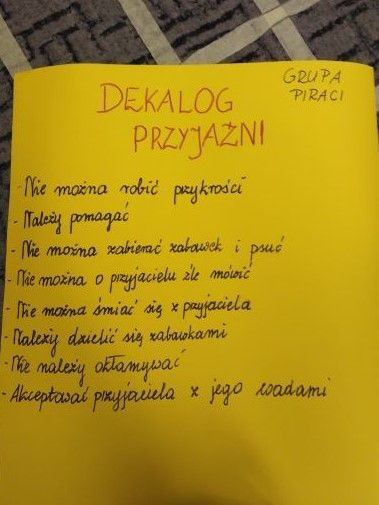 GRUPA
PIRACI
DEKALOG
PRZYJAŹNI
- Nie można robić przykrości
- Należy pomagać
- Nie można zabierać zabawek i psuć
- Nie można o przyjacielu źle mówić
- Nie można śmiać się z przyjaciela
- Należy dzielić się zabawkami
- Nie należy okłamywać
- Akceptować przyjaciela z jego wadami